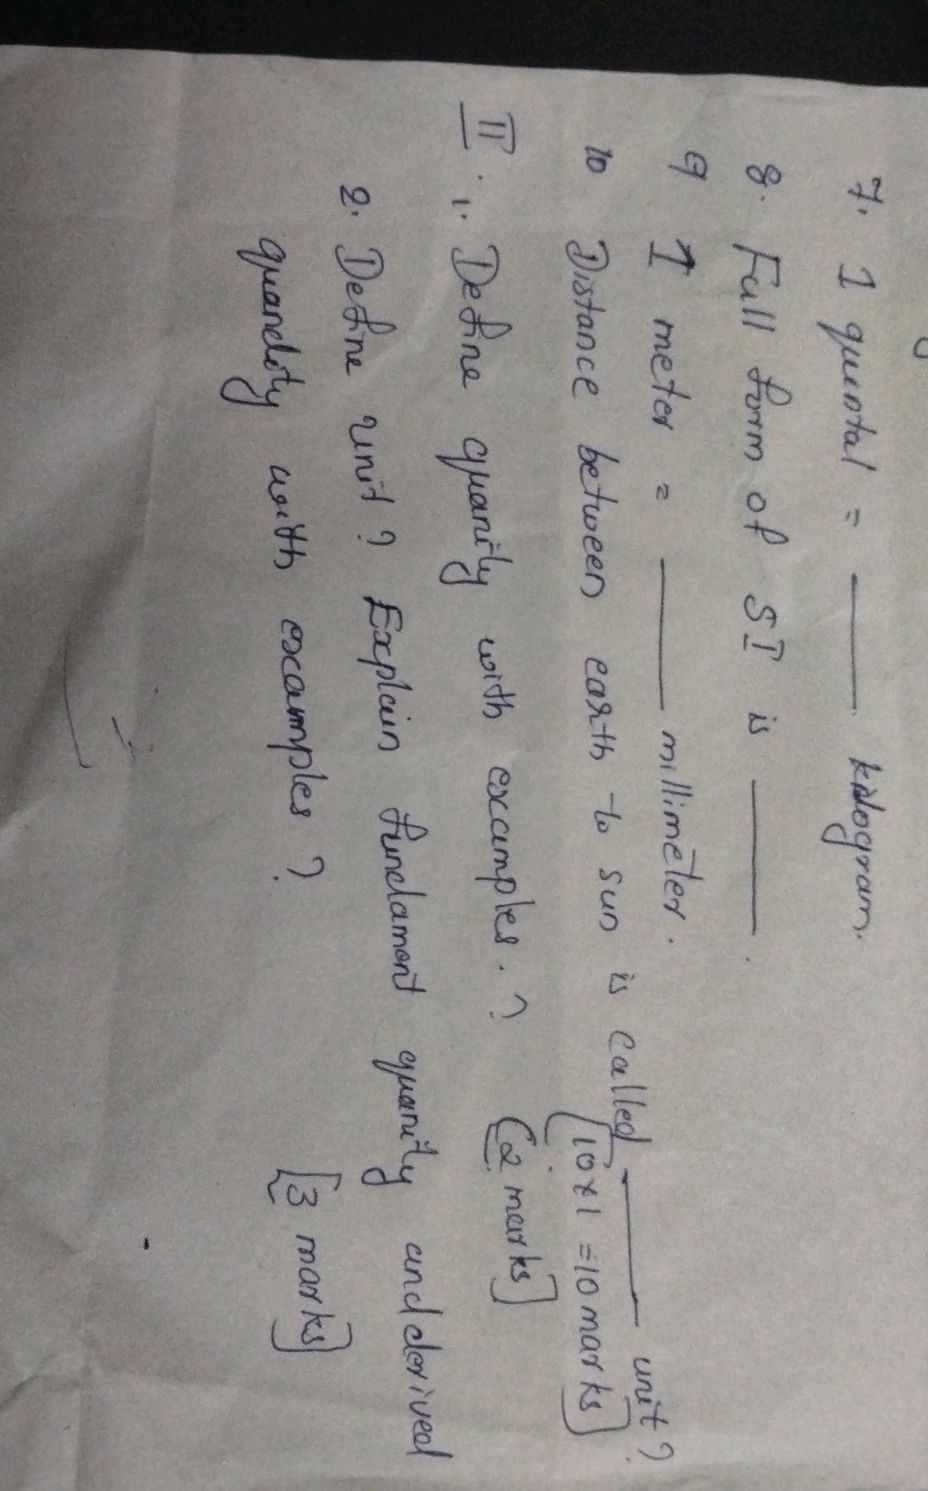 7. 1 quental = ______ kilogram.
8. Full form of SI is ______.
9 1 meter = ______ millimeter.
10 Distance between earth to sun is called ______ unit?
[10x1=10marks]
II. 1. Define quanity with examples.? [2 marks]
2. Define unit? Explain fundament quanity and derived
quandity with examples? [3 marks]